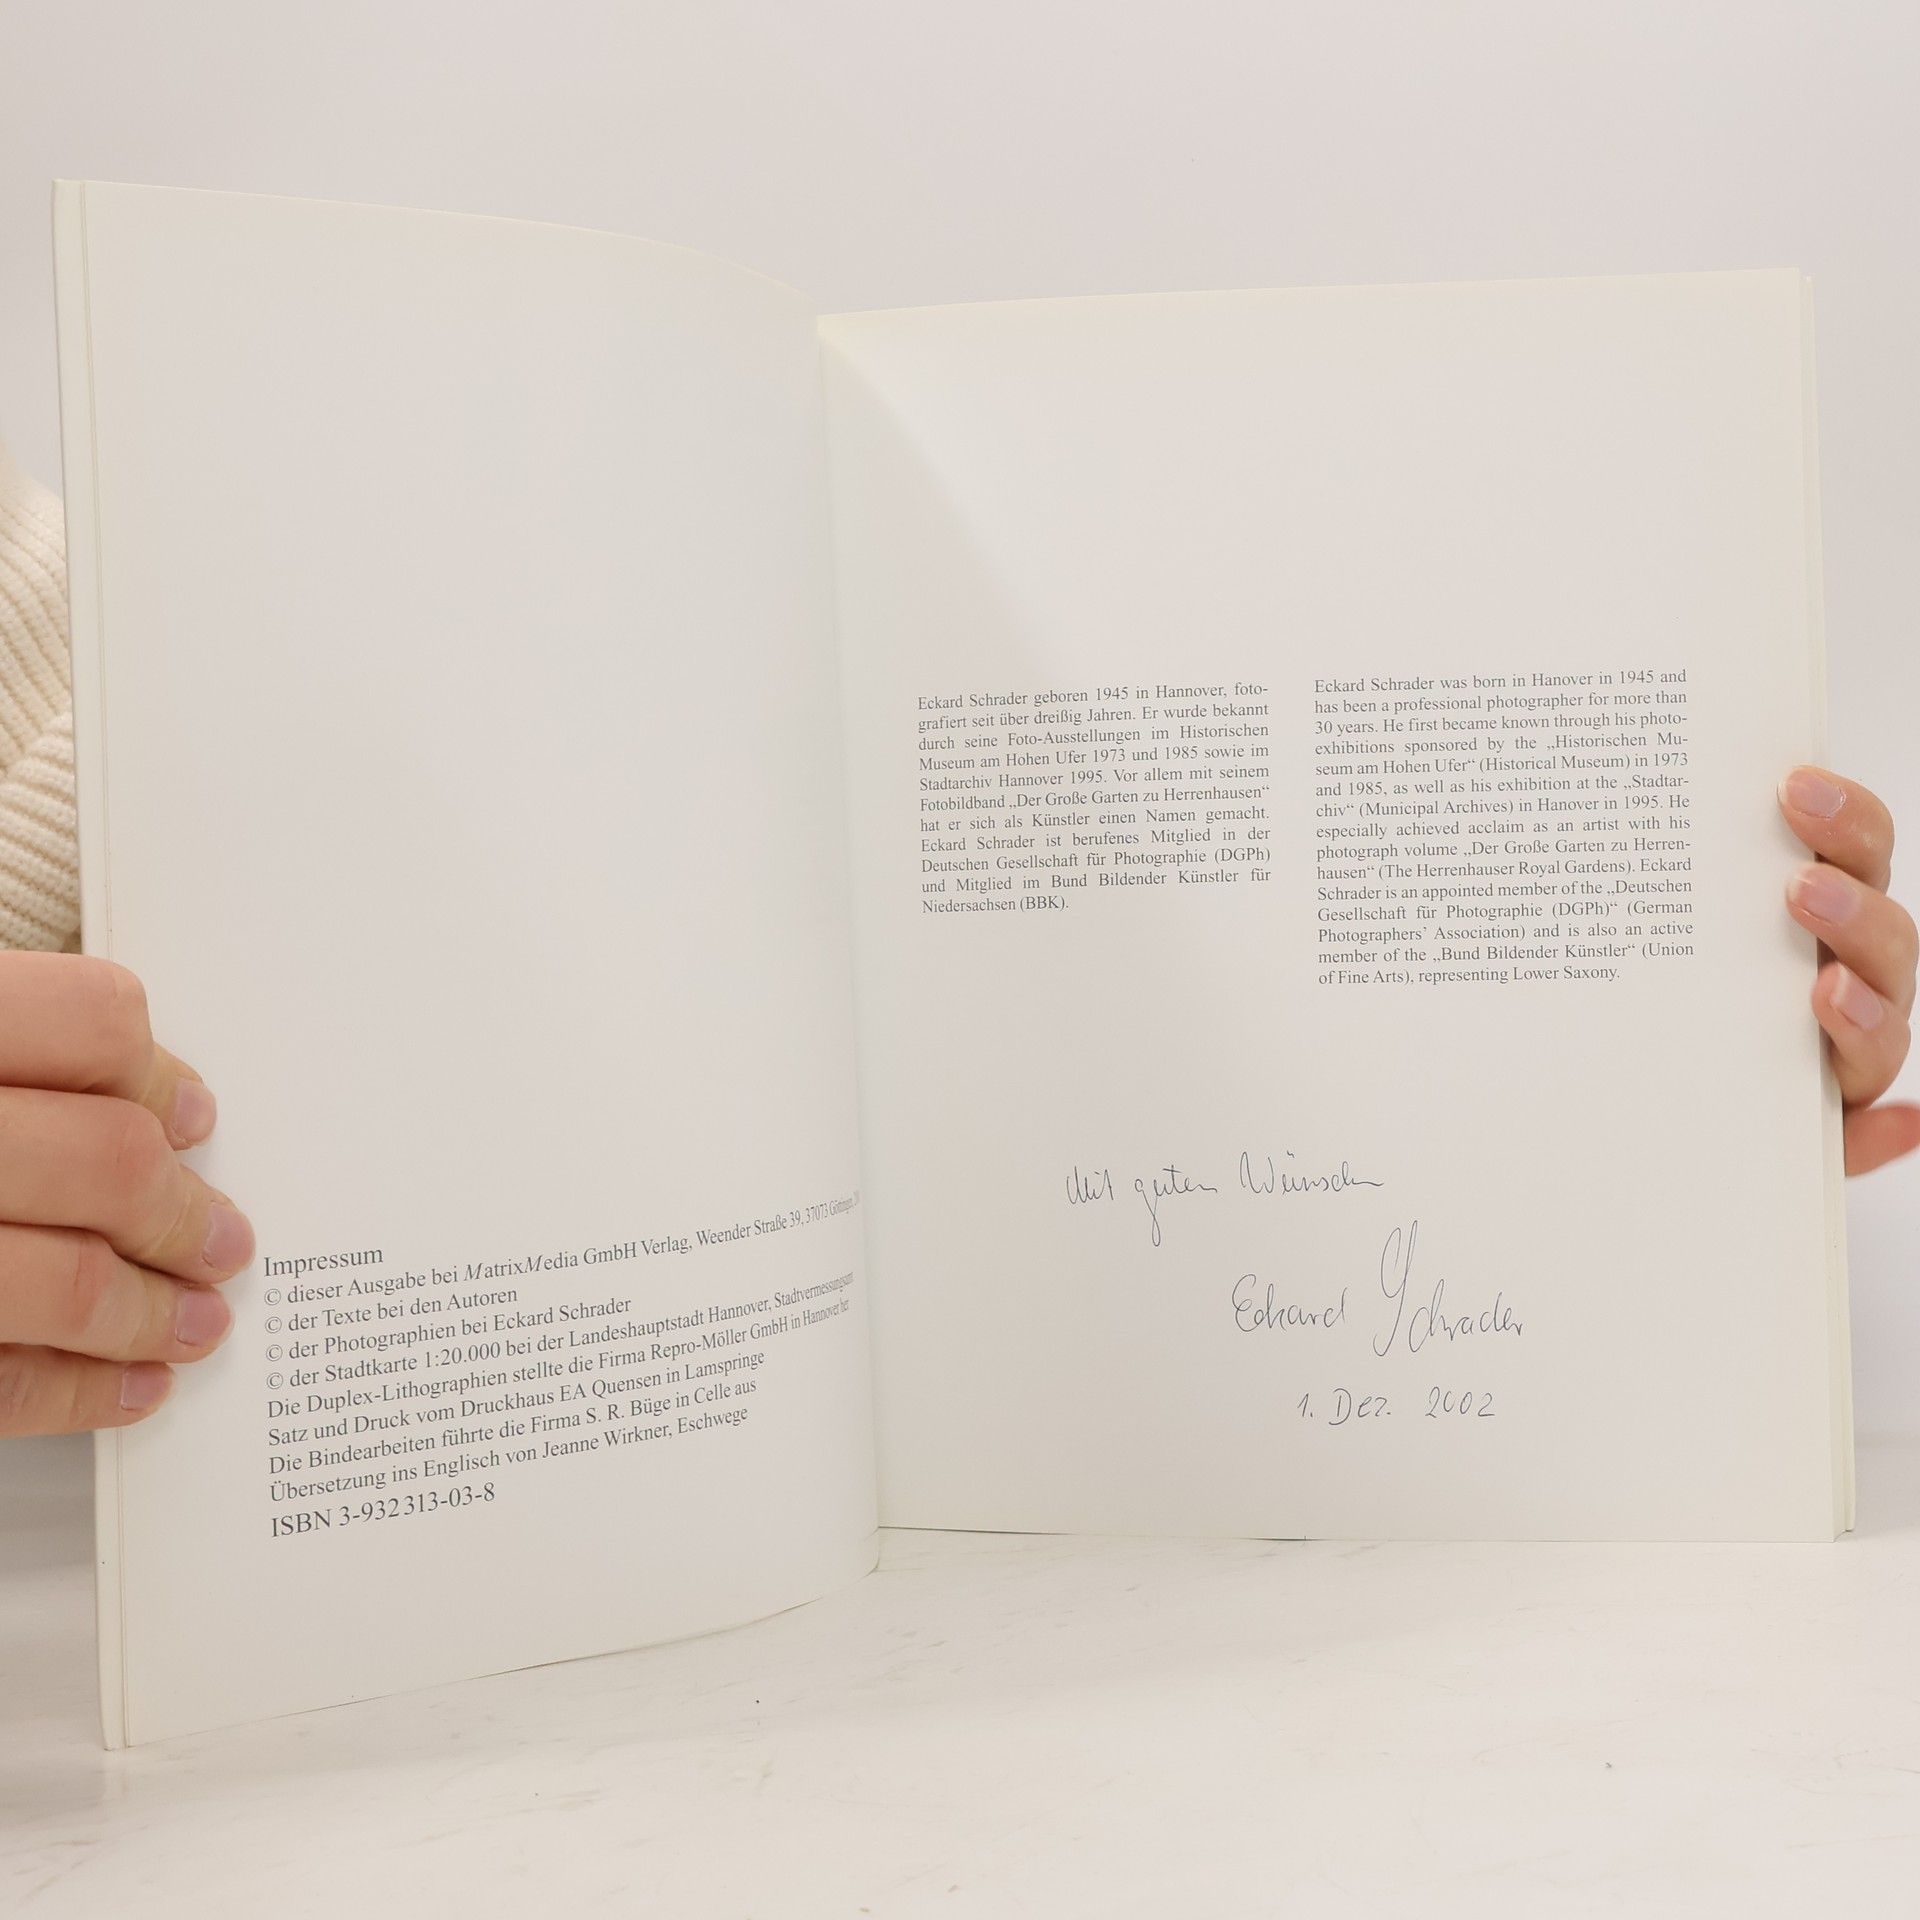 Impressum
© dieser Ausgabe bei MatrixMedia GmbH Verlag, Weender Straße 39, 37073 Göttingen,
© der Texte bei den Autoren
© der Photographien bei Eckard Schrader
© der Stadtkarte 1:20.000 bei der Landeshauptstadt Hannover, Stadtvermessungsamt
Die Duplex-Lithographien stellte die Firma Repro-Möller GmbH in Hannover her
Satz und Druck vom Druckhaus EA Quensen in Lamspringe
Die Bindearbeiten führte die Firma S. R. Büge in Celle aus
Übersetzung ins Englisch von Jeanne Wirkner, Eschwege
ISBN 3-932313-03-8
Eckard Schrader geboren 1945 in Hannover, foto-
grafiert seit über dreißig Jahren. Er wurde bekannt
durch seine Foto-Ausstellungen im Historischen
Museum am Hohen Ufer 1973 und 1985 sowie im
Stadtarchiv Hannover 1995. Vor allem mit seinem
Fotobildband „Der Große Garten zu Herrenhausen“
hat er sich als Künstler einen Namen gemacht.
Eckard Schrader ist berufenes Mitglied in der
Deutschen Gesellschaft für Photographie (DGPh)
und Mitglied im Bund Bildender Künstler für
Niedersachsen (BBK).
Eckard Schrader was born in Hanover in 1945 and
has been a professional photographer for more than
30 years. He first became known through his photo-
exhibitions sponsored by the „Historischen Mu-
seum am Hohen Ufer“ (Historical Museum) in 1973
and 1985, as well as his exhibition at the „Stadtar-
chiv“ (Municipal Archives) in Hanover in 1995. He
especially achieved acclaim as an artist with his
photograph volume „Der Große Garten zu Herren-
hausen“ (The Herrenhauser Royal Gardens). Eckard
Schrader is an appointed member of the „Deutschen
Gesellschaft für Photographie (DGPh)“ (German
Photographers’ Association) and is also an active
member of the „Bund Bildender Künstler“ (Union
of Fine Arts), representing Lower Saxony.
Mit guten Wünschen
Eckard Schrader
1. Dez. 2002